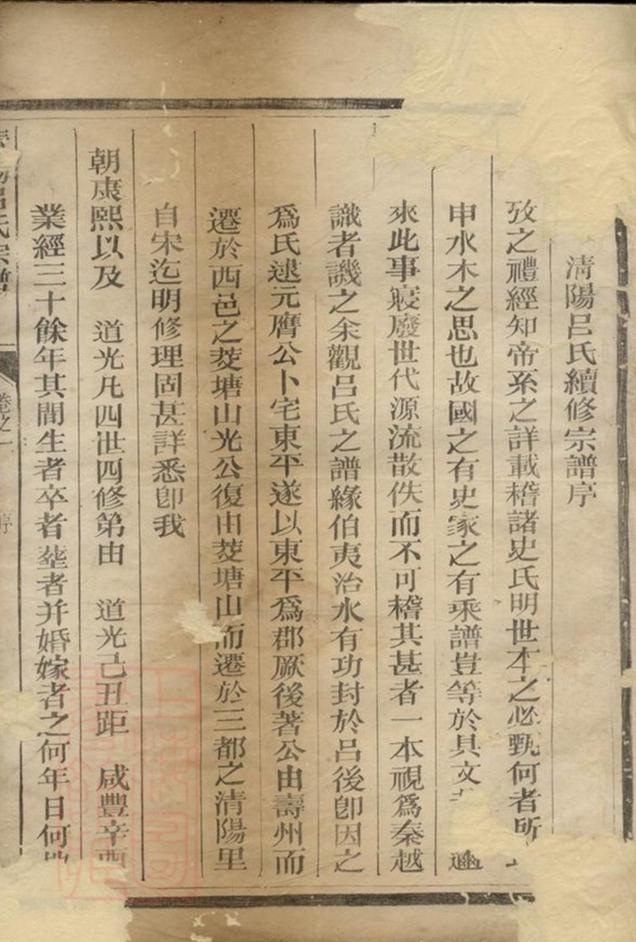 清陽呂氏續修宗譜序
攷之禮經知帝系之詳載稽諸史氏明世本之必甄何者所
申水木之思也故國之有史家之有乘譜豈等於具文
來此事寖廢世代源流散佚而不可稽其甚者一本視爲秦越
識者譏之余觀呂氏之譜緣伯夷治水有功封於呂後卽因之
爲氏逮元膺公卜宅東平遂以東平爲郡厥後著公由壽州而
遷於西邑之菱塘山光公復由菱塘山而遷於三都之清陽里
自宋迄明修理固甚詳悉卽我
朝康熙以及　道光凡四世四修第由　道光己丑距　咸豐辛酉
業經三十餘年其間生者卒者塟者并婚嫁者之何年日何
呂氏宗譜
卷之一
序